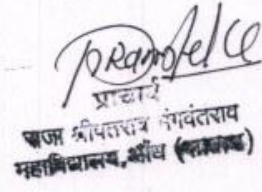 प्राचार्य
राजा श्रीपतराव भगवंतराव
महाविद्यालय, औंध (सातारा)